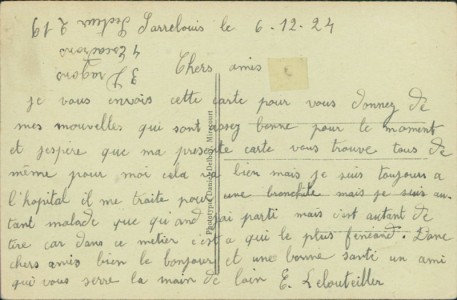 Sarrelouis le 6-12-24
Secteur 219
4 Escadrons
3 Dragons
Chers amis
je vous envois cette carte pour vous donnez de
mes nouvelles qui sont assez bonne pour le moment
et j'espère que ma presente carte vous trouve tous de
même pour moi cela va bien mais je suis toujours a
l'hopital il me traite pour une bronchite mais je suis au-
tant malade que quand j'ai parti mais c'est autant de
tire car dans ce metier c'est a qui le plus fineand. Donc
chers amis bien le bonjour et une bonne santi un ami
qui vous serre la main de loin E. Lelouteiller
Phototypie Daniel Delboy, Mirecourt